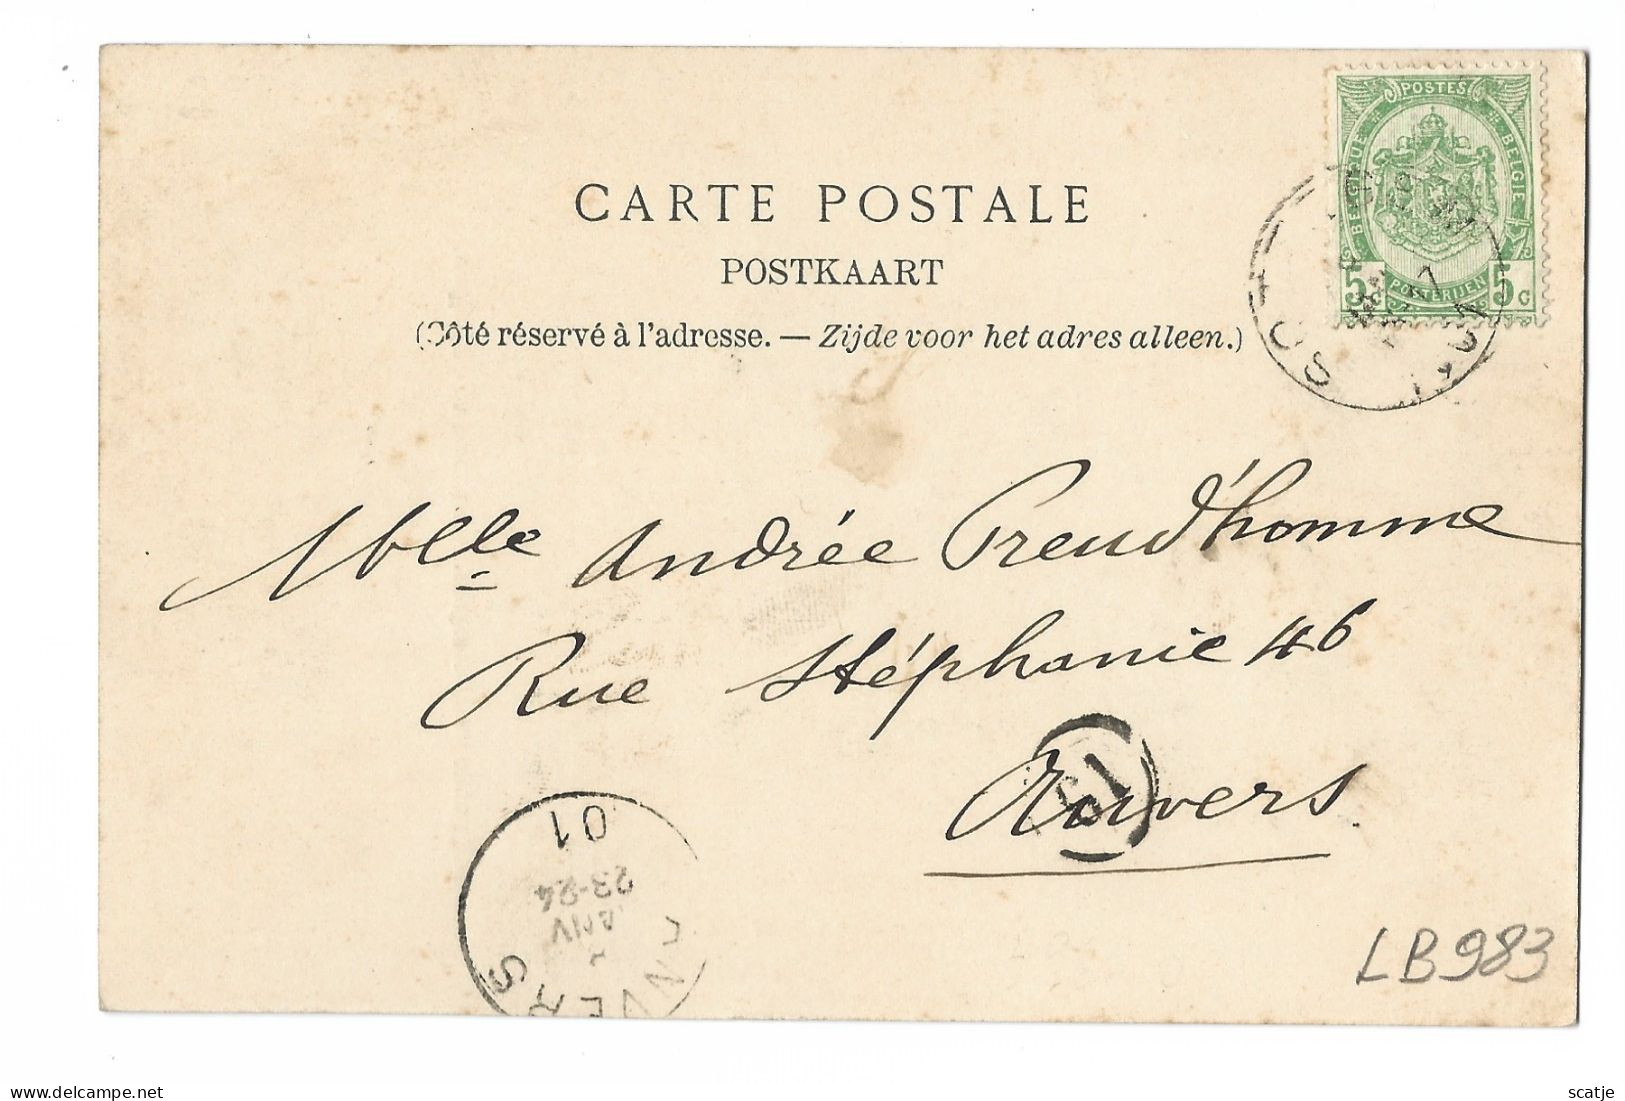 POSTES
BELGIQUE
BELGIE
5 POSTERIJEN 5 c
CARTE POSTALE
POSTKAART
(Côté réservé à l'adresse. — Zijde voor het adres alleen.)
Mlle Andrée Preud'homme
Rue Stéphanie 46
Anvers
01
23-24
JANV
ANVERS
LB983
scatje